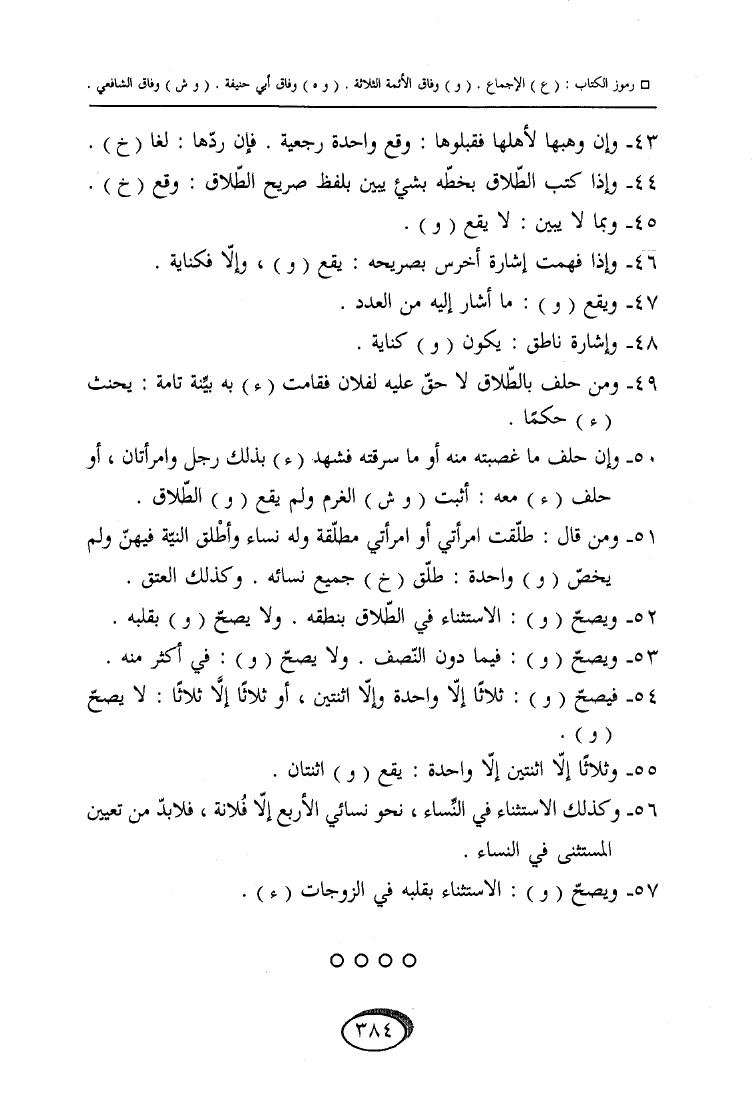 □ رموز الكتاب : ( ع ) الإجماع . ( و ) وفاق الأئمة الثلاثة . ( و ه ) وفاق أبي حنيفة . ( و ش ) وفاق الشافعي .
٤٣ـ وإن وهبها لأهلها فقبلوها : وقع واحدة رجعية . فإن ردّها : لغا ( خ ) .
٤٤ـ وإذا كتب الطّلاق بخطّه بشئ يبين بلفظ صريح الطّلاق : وقع ( خ ) .
٤٥ـ وبما لا يبين : لا يقع ( و ) .
٤٦ـ وإذا فهمت إشارة أخرس بصريحه : يقع ( و ) ، وإلّا فكناية .
٤٧ـ ويقع ( و ) : ما أشار إليه من العدد .
٤٨ـ وإشارة ناطق : يكون ( و ) كناية .
٤٩ـ ومن حلف بالطّلاق لا حقّ عليه لفلان فقامت ( ء ) به بيّنة تامة : يحنث
( ء ) حكمًا .
٥٠ـ وإن حلف ما غصبته منه أو ما سرقته فشهد ( ء ) بذلك رجل وامرأتان ، أو
حلف ( ء ) معه : أثبت ( و ش ) الغرم ولم يقع ( و ) الطّلاق .
٥١ـ ومن قال : طلّقت امرأتي أو امرأتي مطلّقة وله نساء وأطْلق النيّة فيهنّ ولم
يخصّ ( و ) واحدة : طلّق ( خ ) جميع نسائه . وكذلك العتق .
٥٢ـ ويصحّ ( و ) : الاستثناء في الطّلاق بنطقه . ولا يصحّ ( و ) بقلبه .
٥٣ـ ويصحّ ( و ) : فيما دون النّصف . ولا يصحّ ( و ) : في أكثر منه .
٥٤ـ فيصحّ ( و ) : ثلاثًا إلّا واحدة وإلّا اثنتين ، أو ثلاثًا إلَّا ثلاثًا : لا يصحّ
( و ) .
٥٥ـ وثلاثًا إلّا اثنتين إلّا واحدة : يقع ( و ) اثنتان .
٥٦ـ وكذلك الاستثناء في النِّساء ، نحو نسائي الأربع إلّا فُلانة ، فلابدّ من تعيين
المستثنى في النساء .
٥٧ـ ويصحّ ( و ) : الاستثناء بقلبه في الزوجات ( ء ) .
٣٨٤